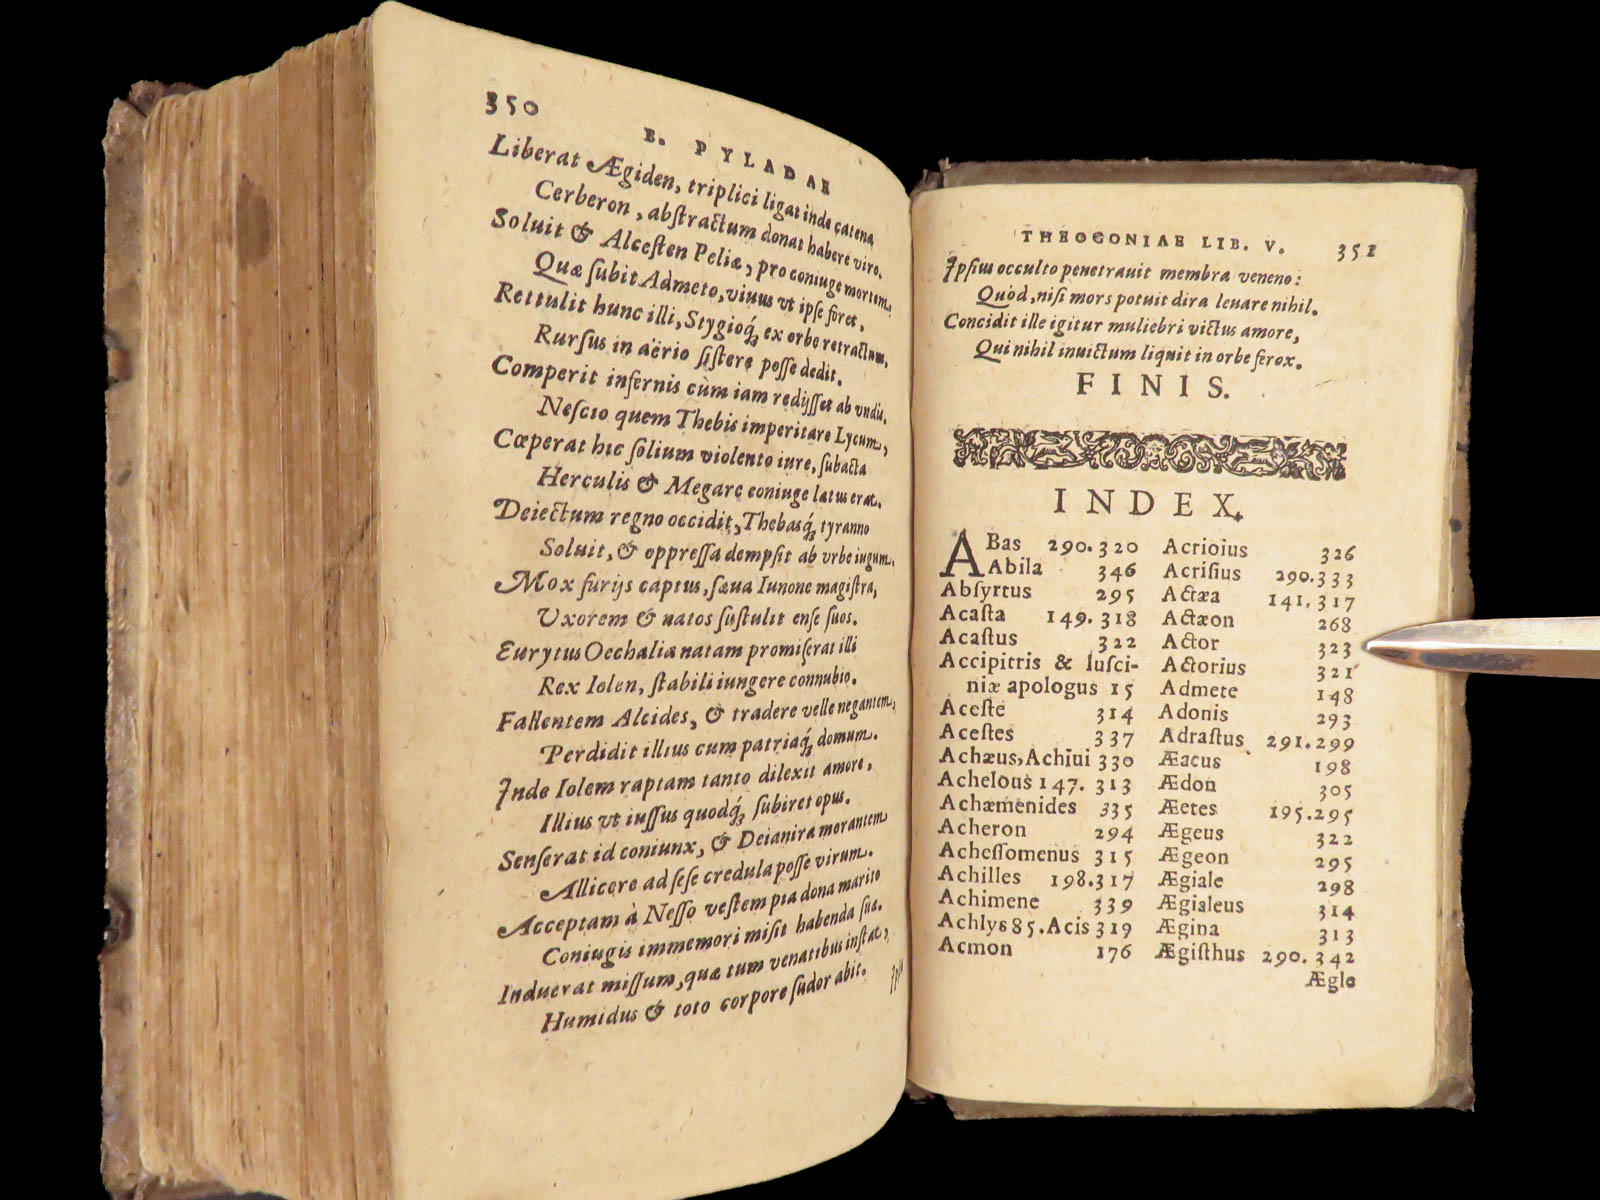 350
B. PYLADAE
Liberat Ægiden, triplici ligat inde catena
Cerberon, abſtractum donat habere viro.
Soluit & Alceſten Peliæ, pro coniuge mortem
Quæ ſubit Admeto, viuus vt ipſe foret.
Rettulit hunc illi, Stygioq́; ex orbe retractum,
Rurſus in aërio ſiſtere poſſe dedit.
Comperit infernis cùm iam redijſſet ab vndis,
Neſcio quem Thebis imperitare Lycum,
Cœperat hic ſolium violento iure, ſubacta
Herculis & Megare coniuge latus erat.
Deiectum regno occidit, Thebasq́; tyranno
Soluit, & oppreſſa dempſit ab vrbe iugum.
Mox furijs captus, ſæua Iunone magiſtra,
Vxorem & natos ſuſtulit enſe ſuos.
Eurytus Oechaliæ natam promiſerat illi
Rex Iolen, ſtabili iungere connubio.
Fallentem Alcides, & tradere velle negantem,
Perdidit illius cum patriaq́; domum.
Inde Iolem raptam tanto dilexit amore,
Illius vt iuſſus quodq́; ſubiret opus.
Senſerat id coniunx, & Deianira morantem
Allicere ad ſeſe credula poſſe virum.
Acceptam à Neſſo veſtem pia dona marito
Coniugis immemori miſit habenda ſuæ.
Induerat miſſum, quæ tum venatibus inſtat,
Humidus & toto corpore ſudor abit.
Ipſi
THEOGONIAE LIB. V. 351
Ipſius occulto penetrauit membra veneno:
Quòd, niſi mors potuit dira leuare nihil.
Concidit ille igitur muliebri victus amore,
Qui nihil inuictum liquit in orbe ferox.
FINIS.
INDEX.
ABas 290.320
Abila 346
Abſyrtus 295
Acaſta 149.318
Acaſtus 322
Accipitris & luſci-
niæ apologus 15
Aceſte 314
Aceſtes 337
Achæus, Achiui 330
Achelous 147. 313
Achæmenides 335
Acheron 294
Acheſſomenus 315
Achilles 198.317
Achimene 339
Achlys 85. Acis 319
Acmon 176
Acrioius 326
Acriſius 290.333
Actæa 141.317
Actæon 268
Actor 323
Actorius 321
Admete 148
Adonis 293
Adraſtus 291.299
Æacus 198
Ædon 305
Æetes 195.295
Ægeus 322
Ægeon 295
Ægiale 298
Ægialeus 314
Ægina 313
Ægiſthus 290.342
Ægle